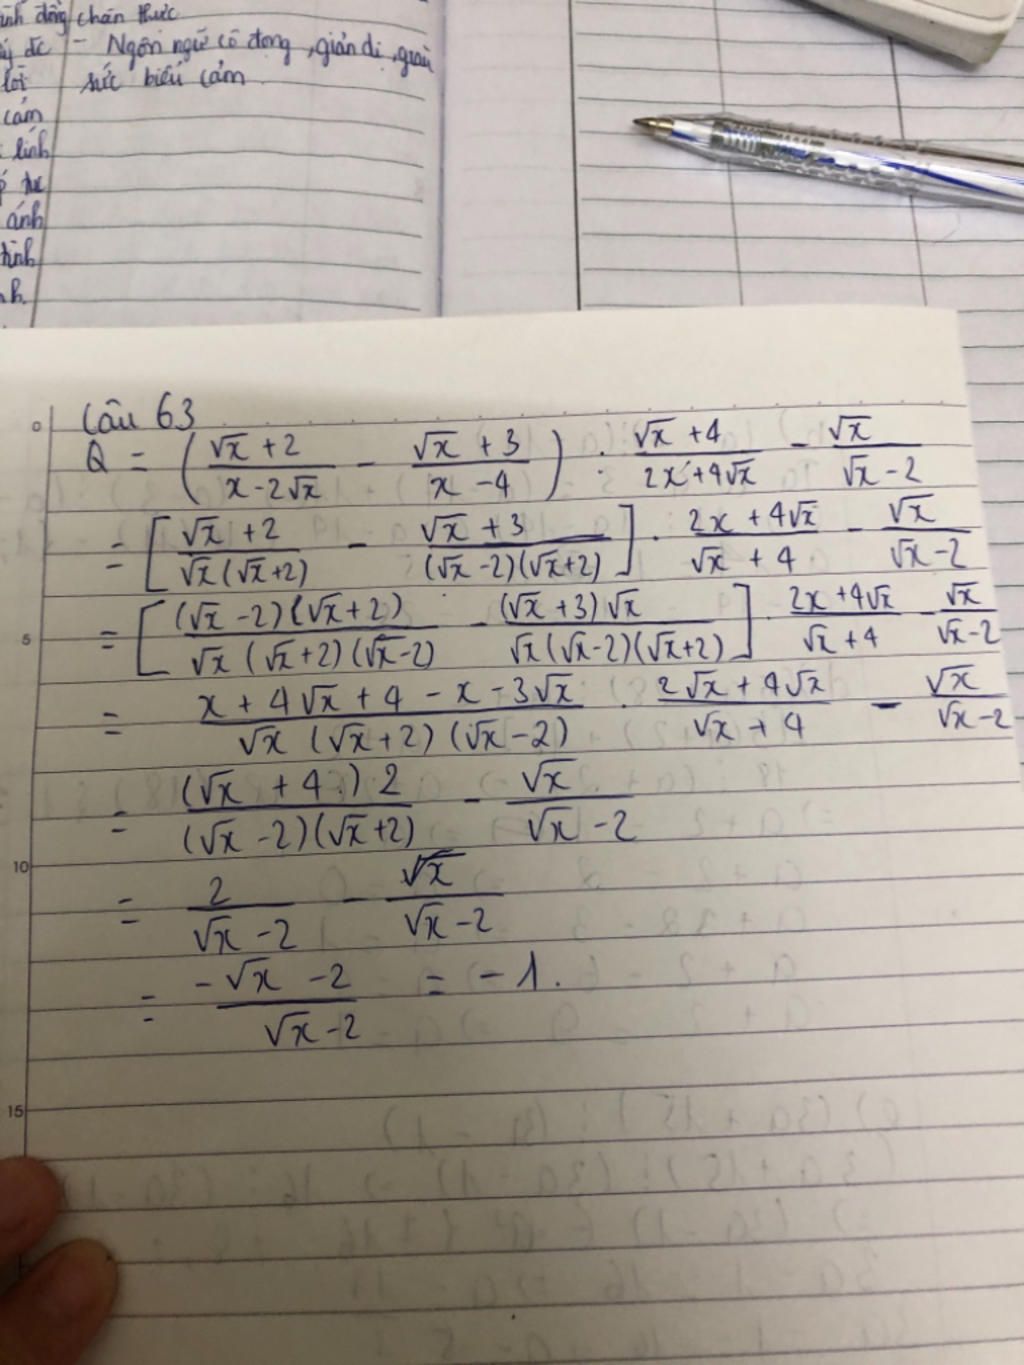 ình động chân thực
ý đc - Ngôn ngữ cô đọng, giản dị, giàu
lời sức biểu cảm
cảm
lính
ánh
hình
nh.
Câu 63
Q = ( (√x + 2)/(x - 2√x) - (√x + 3)/(x - 4) ) : (√x + 4)/(2x + 4√x) - √x/(√x - 2)
= [ (√x + 2)/(√x(√x + 2)) - (√x + 3)/((√x - 2)(√x + 2)) ] . (2x + 4√x)/(√x + 4) - √x/(√x - 2)
= [ (√x - 2)(√x + 2)/(√x(√x + 2)(√x - 2)) - (√x + 3)√x/(√x(√x - 2)(√x + 2)) ] . (2x + 4√x)/(√x + 4) - √x/(√x - 2)
= (x + 4√x + 4 - x - 3√x)/(√x(√x + 2)(√x - 2)) . (2√x + 4√x)/(√x + 4) - √x/(√x - 2)
= (√x + 4.) 2/((√x - 2)(√x + 2)) - √x/(√x - 2)
= 2/(√x - 2) - √x/(√x - 2)
= (-√x - 2)/(√x - 2) = -1.
0
5
10
15